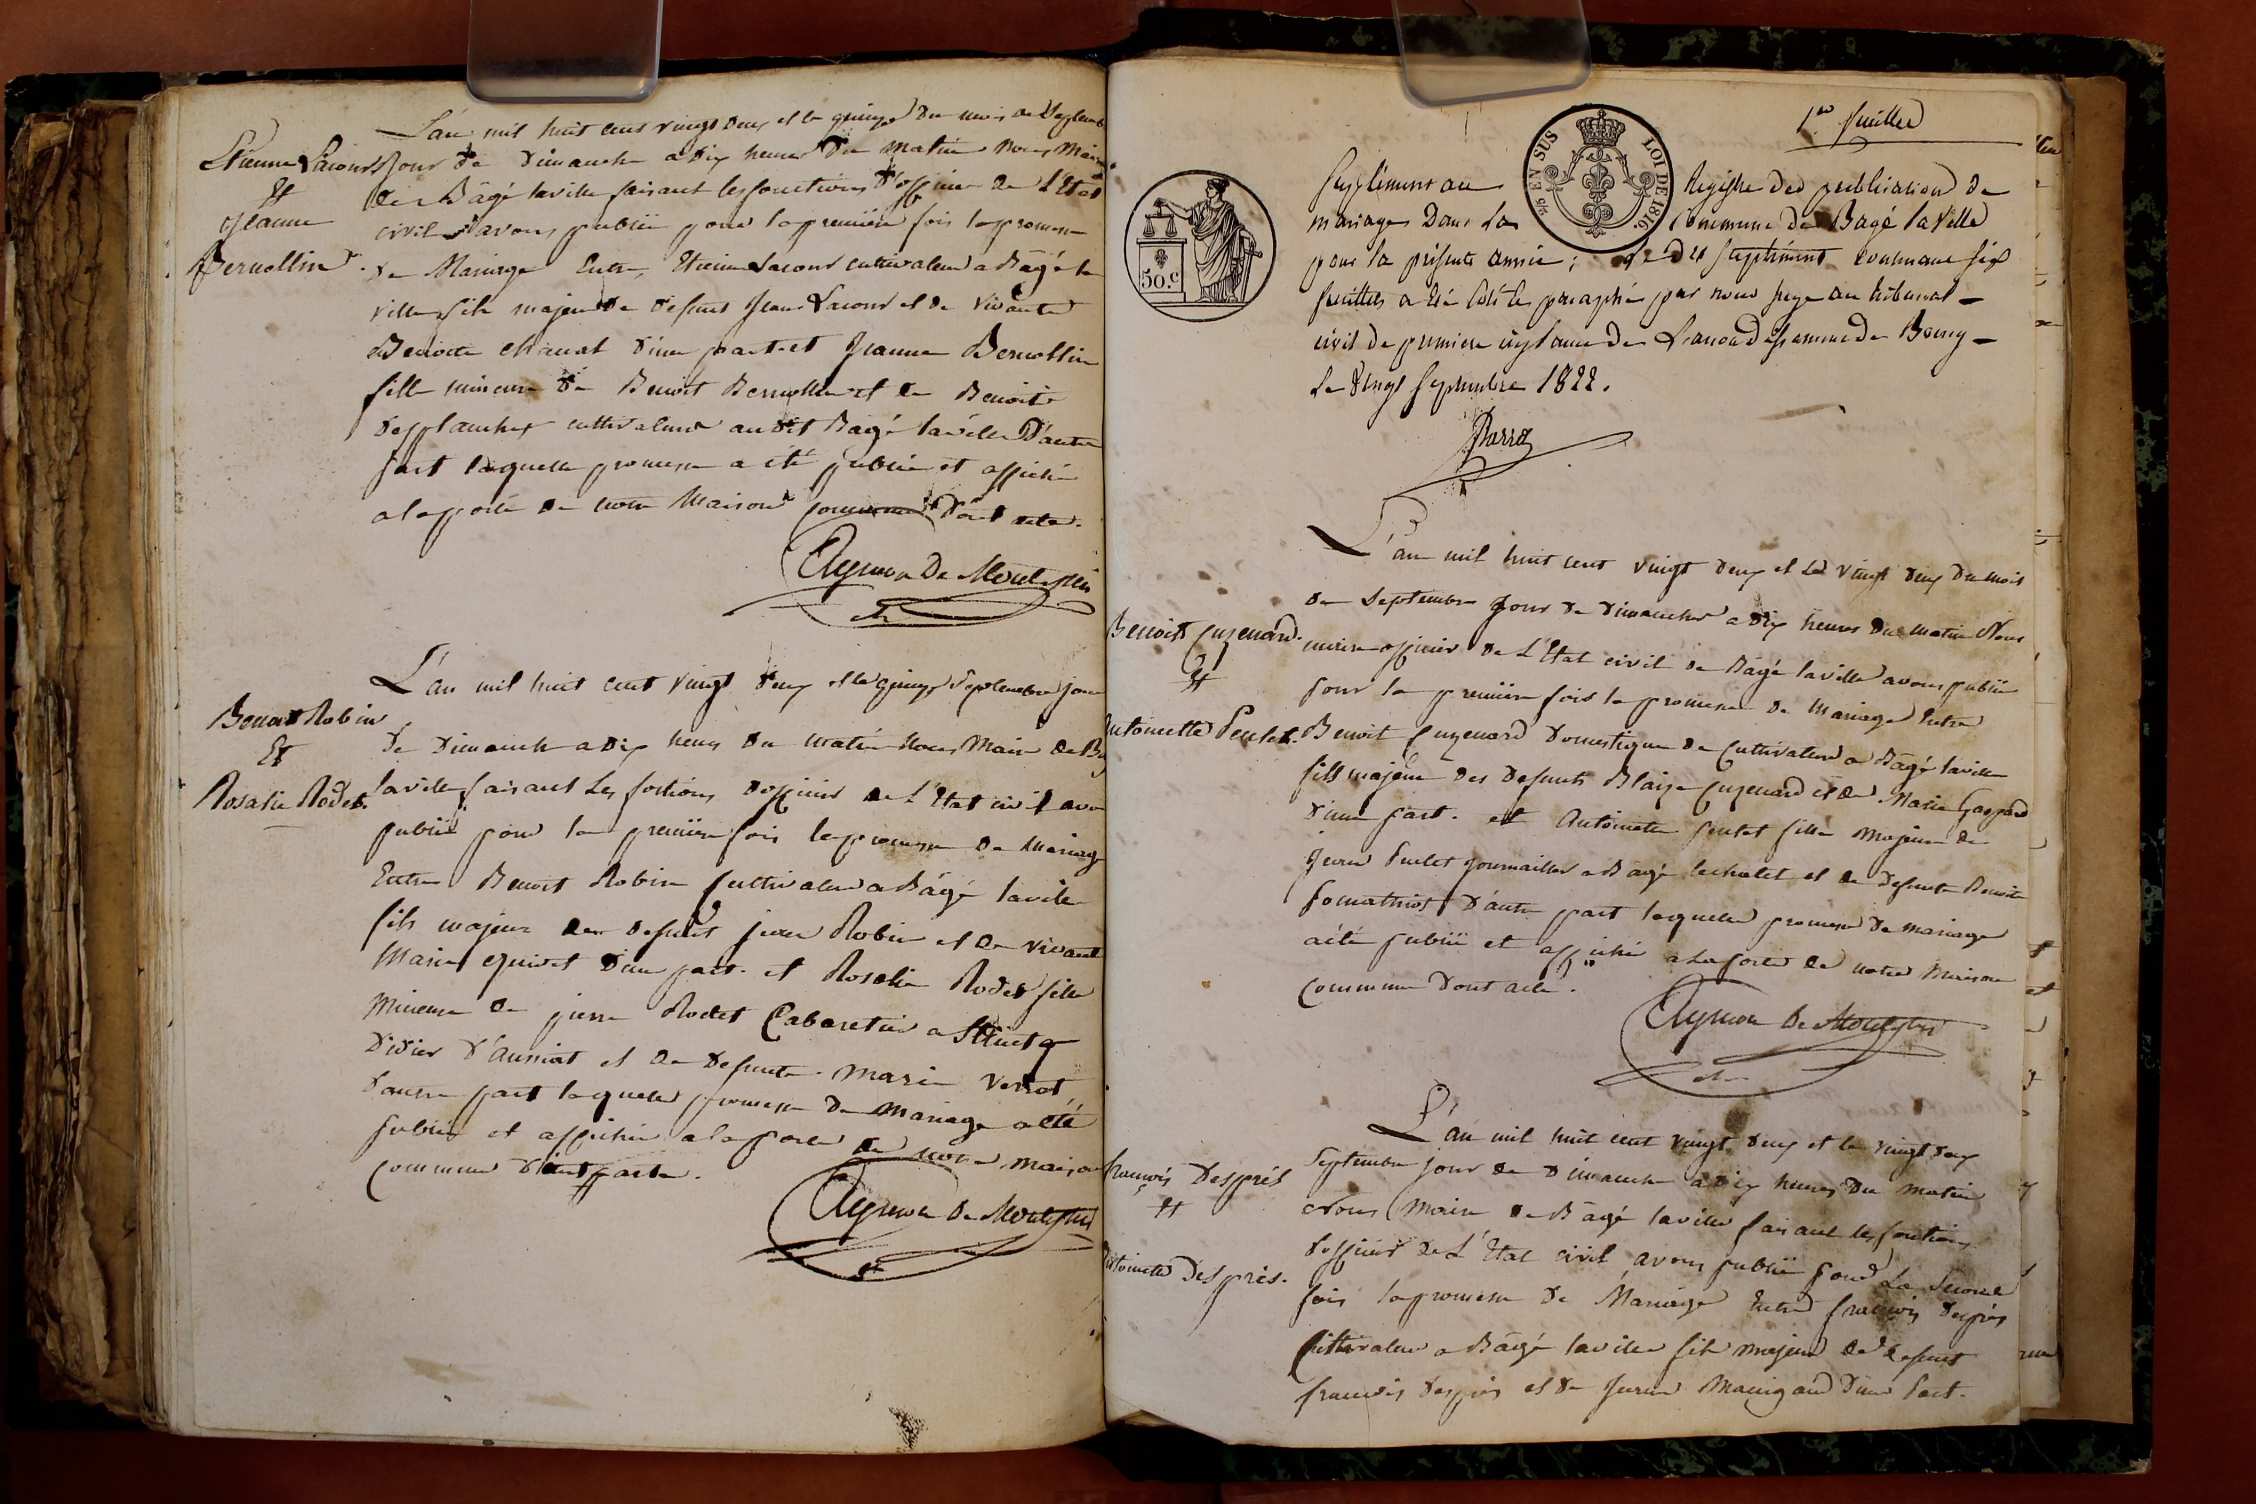 L'an mil huit cent vingt deux et le quinze du mois de Septemb
Etienne Lacour
Jour de Dimanche a dix heures du matin nous Maire
Et
de Bâgé laville faisant les fonctions d'officier de L'Etat
Jeanne
civil avons publié pour la premiere fois la promesse
Bernollin
de Mariage Entre Etienne Lacour cultivateur a Bâgé la
ville fils majeur de defunt Jean Lacour et de vivante
Benoite chanal d'une part et Jeanne Bernollin
fille mineure de Benoit Bernollin et de Benoite
desplanches cultivateurs au dit Bâgé laville D'autre
part laquelle promesse a eté publiée et affichée
a la porte de notre Maison commune dont acte.
Aymon De Montepin
L'an mil huit cent vingt deux et le quinze Septembre jour
Benoit Robin
de Dimanche a dix heures du matin nous Maire de B
Et
laville faisant Les fontions d'officier de L'Etat civil avo
Rosalie Rodet
publié pour la premiere fois la promesse de Mariag
Entre Benoit Robin cultivateur a Bâgé laville
fils majeur de defunt jean Robin et de vivante
Marie d'une part. et Rosalie Rodet fille
Mineure de pierre Rodet Cabaretier a St
Didier d'aussiat et de defunte Marie Verrot
d'autre part laquelle promesse de Mariage a eté
publiée et affichée a la porte de notre maison
commune dont acte.
Aymon De Montepin
1er feuillet
EN SUS LOI DE 1816.
50.c
Supplément au Registre des publications de
mariages dans la Commune de Bagé la Ville
pour la présente année; Le dit Supplément contenant six
feuillets a été coté et paraphé par nous Juge au tribunal
civil de premiere instance de L'arrondissement de Bourg
Le Vingt Septembre 1822.
L'an mil huit cent vingt deux et Le vingt deux du mois
de Septembre jour de dimanche a dix heures du matin Nous
Benoit Cuzenard
maire officier de L'Etat civil de Bâgé laville avons publié
Et
pour la premiere fois la promesse de Mariage Entre
ntoinette Peulet.
Benoit Cuzenard Domestique de Cultivateur a Bâgé laville
fils majeur des defunts Blaize Cuzenard et de Marie Gaspard
d'une part. et Antoinette Peulet fille Majeure de
Peulet journaillier a Bâgé lechatel et de defunte Benoite
d'autre part laquelle promesse de mariage
a été publiée et affichée a La porte de notre Maison
commune dont acte.
Aymon De Montepin
L'an mil huit cent vingt deux et le vingt deux
Septembre jour de Dimanche a dix heures du matin
françois Desprès
Nous Maire de Bâgé laville faisant les fontions
Et
d'officier de L'Etat civil avons publié pour La Seconde
ntoinette Desprès.
fois la promesse de Mariage Entre françois desprès
Cultivateur a Bâgé laville fils majeur de defunt
francois desprès et de d'une Part.